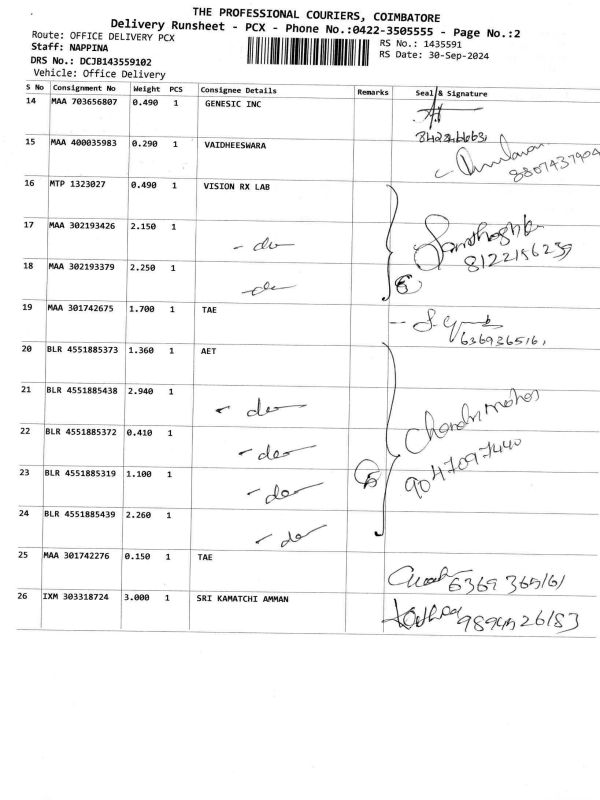 THE PROFESSIONAL COURIERS, COIMBATORE
Delivery Runsheet - PCX - Phone No.:0422-3505555 - Page No.:2
Route: OFFICE DELIVERY PCX
RS No.: 1435591
Staff: NAPPINA
RS Date: 30-Sep-2024
DRS No.: DCJB143559102
Vehicle: Office Delivery
S No Consignment No Weight PCS Consignee Details Remarks Seal & Signature
14 MAA 703656807 0.490 1 GENESIC INC
15 MAA 400035983 0.290 1 VAIDHEESWARA
8807437904
16 MTP 1323027 0.490 1 VISION RX LAB
17 MAA 302193426 2.150 1 - do
8122156239
18 MAA 302193379 2.250 1 - do
19 MAA 301742675 1.700 1 TAE
6369365161
20 BLR 4551885373 1.360 1 AET
21 BLR 4551885438 2.940 1 - do
22 BLR 4551885372 0.410 1 - do
9047097440
23 BLR 4551885319 1.100 1 - do
5
24 BLR 4551885439 2.260 1 - do
25 MAA 301742276 0.150 1 TAE
6369365161
26 IXM 303318724 3.000 1 SRI KAMATCHI AMMAN